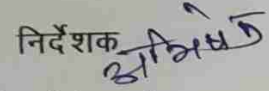 निर्देशक अभिषेक